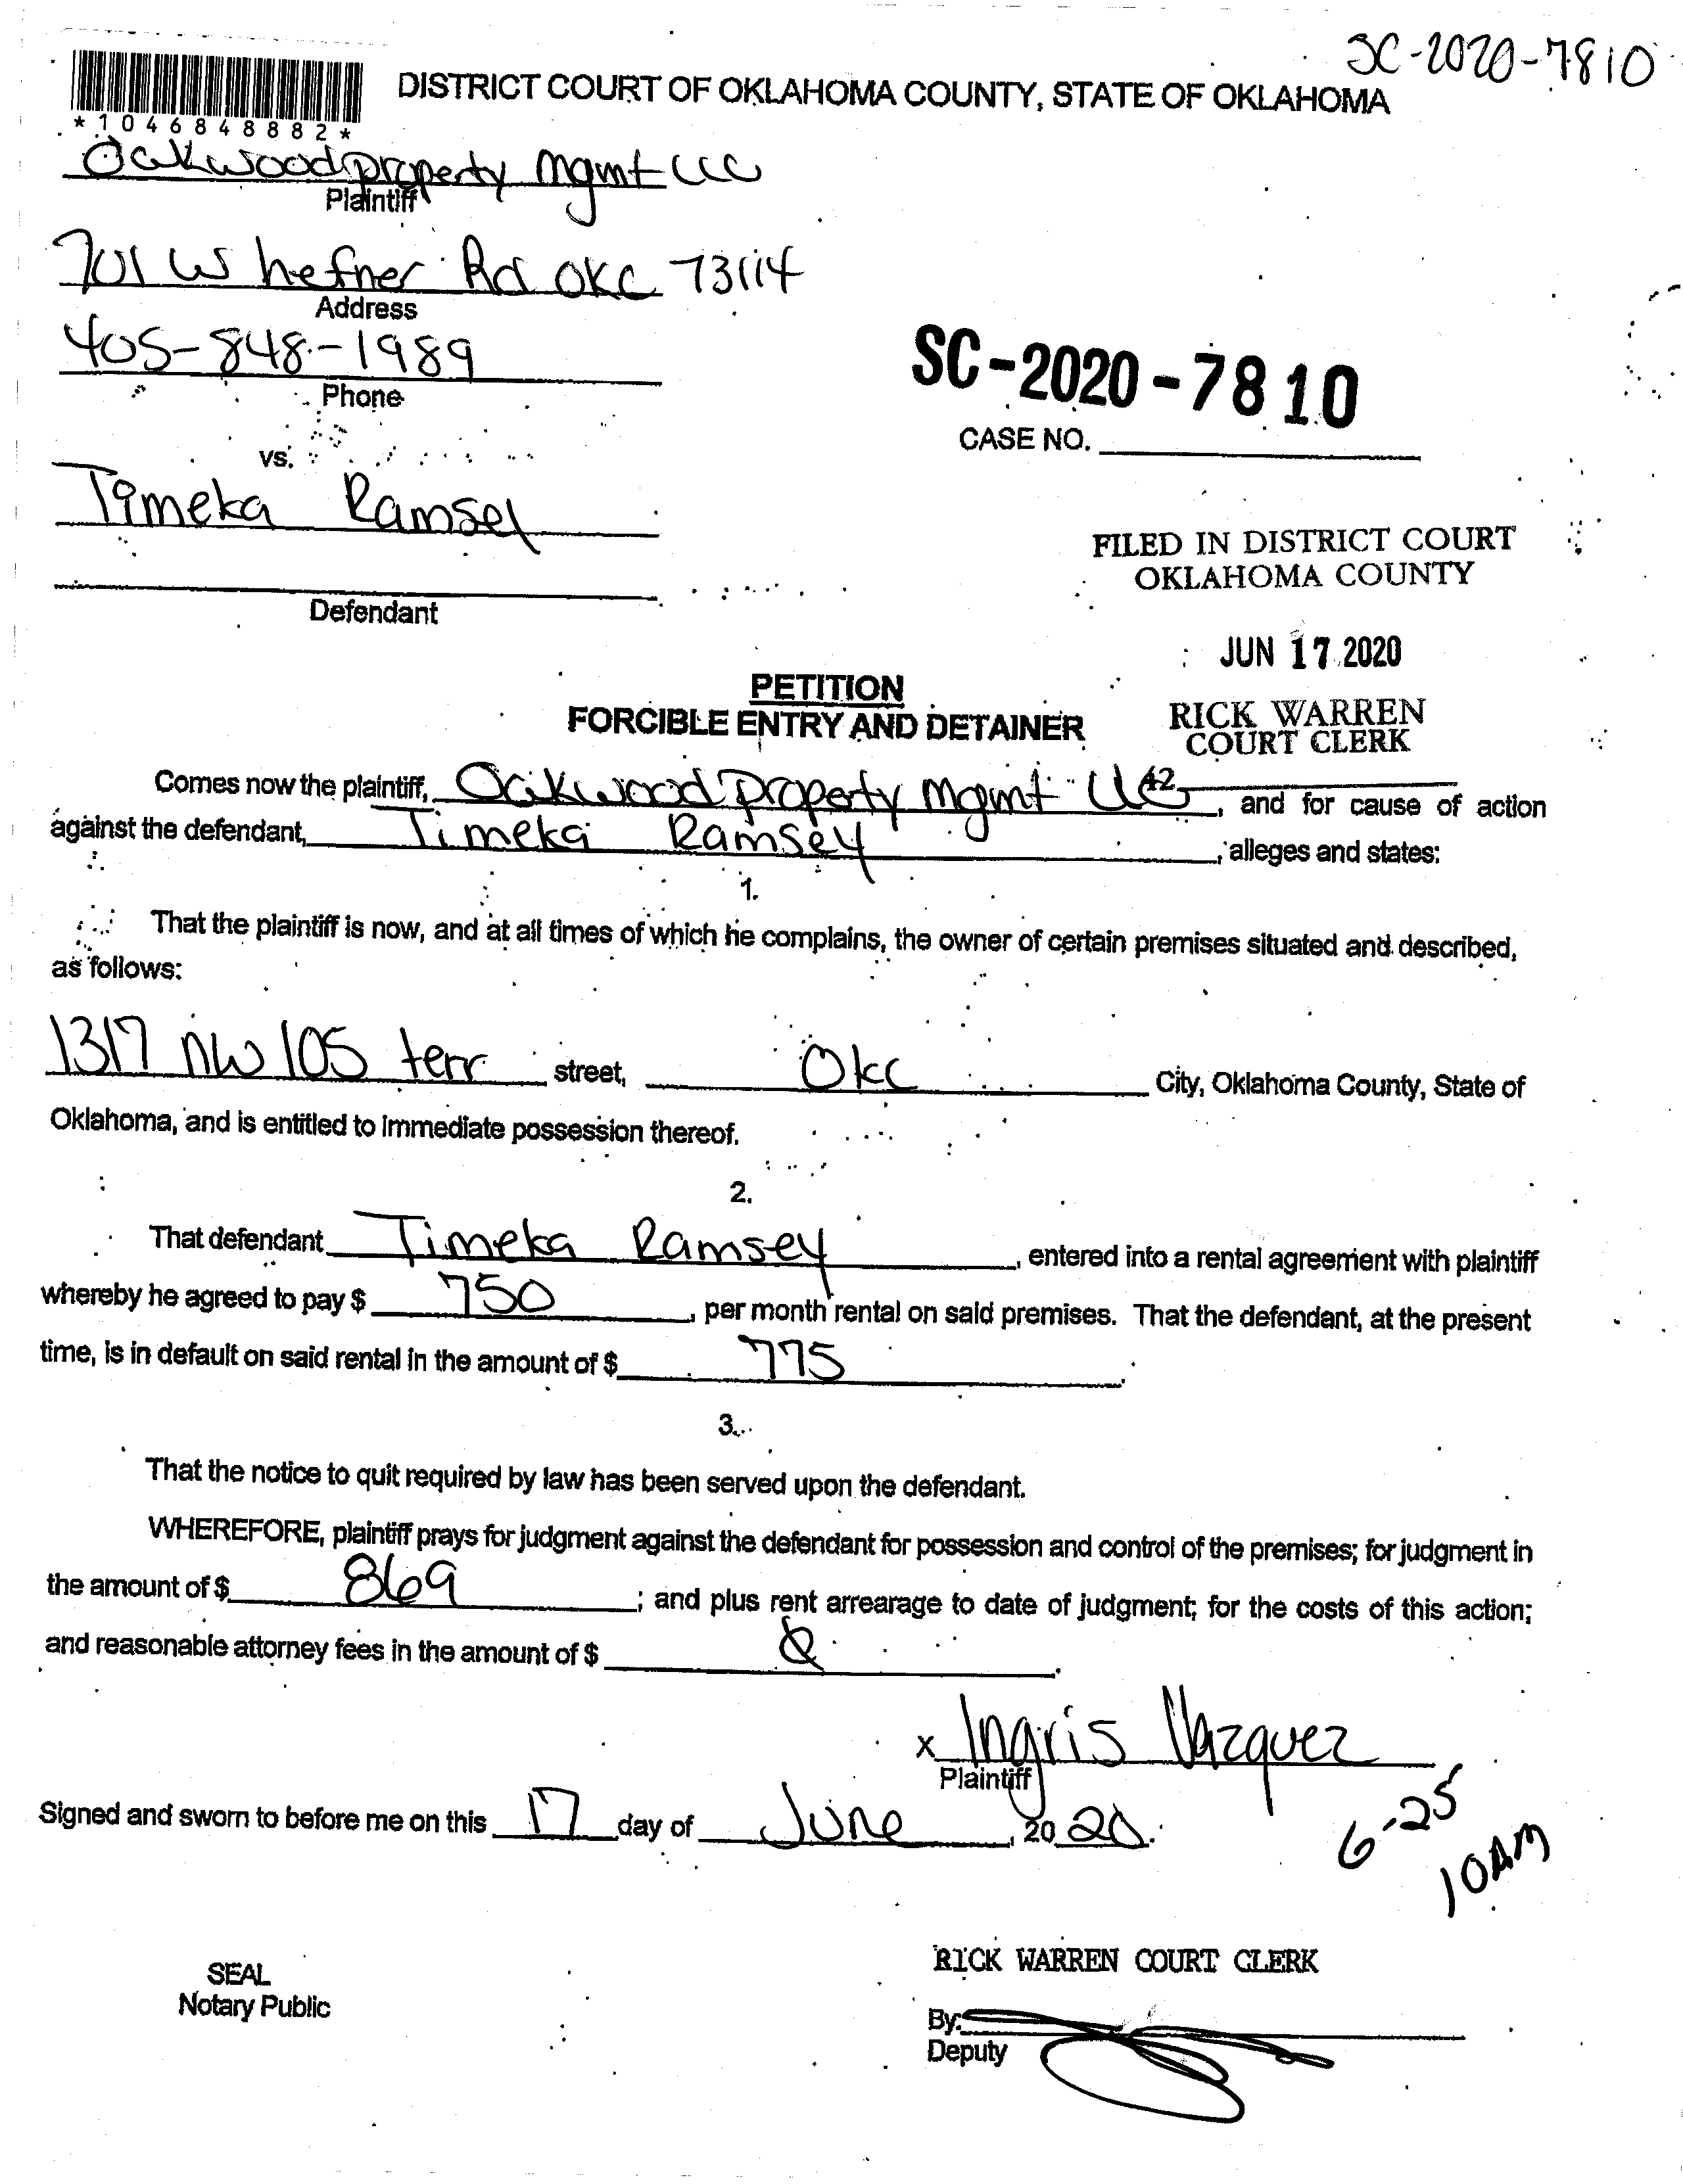 SC-2020-7810
DISTRICT COURT OF OKLAHOMA COUNTY, STATE OF OKLAHOMA
*1046848882*
Oakwood property mgmt LLC
Plaintiff
701 W hefner Rd OKC 73114
Address
405-848-1989
Phone
SC-2020-7810
CASE NO.
vs.
Timeka Ramsey
Defendant
FILED IN DISTRICT COURT
OKLAHOMA COUNTY
JUN 17 2020
RICK WARREN
COURT CLERK
42
PETITION
FORCIBLE ENTRY AND DETAINER
Comes now the plaintiff, Oakwood property mgmt LLC, and for cause of action
against the defendant, Timeka Ramsey, alleges and states:
1.
That the plaintiff is now, and at all times of which he complains, the owner of certain premises situated and described,
as follows:
1317 NW 105 terr street, Okc City, Oklahoma County, State of
Oklahoma, and is entitled to immediate possession thereof.
2.
That defendant Timeka Ramsey, entered into a rental agreement with plaintiff
whereby he agreed to pay $ 750, per month rental on said premises. That the defendant, at the present
time, is in default on said rental in the amount of $ 775.
3.
That the notice to quit required by law has been served upon the defendant.
WHEREFORE, plaintiff prays for judgment against the defendant for possession and control of the premises; for judgment in
the amount of $ 869; and plus rent arrearage to date of judgment; for the costs of this action;
and reasonable attorney fees in the amount of $ 0.
x Ingris Vazquez
Plaintiff
Signed and sworn to before me on this 17 day of June, 20 20.
6-25
10AM
RICK WARREN COURT CLERK
SEAL
Notary Public
By:
Deputy